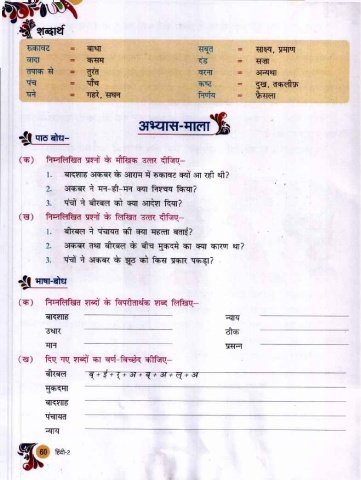 शब्दार्थ
रुकावट = बाधा सबूत = साक्ष्य, प्रमाण
वादा = कसम दंड = सजा
तपाक से = तुरंत वरना = अन्यथा
पंच = पाँच कष्ट = दुख, तकलीफ़
घने = गहरे, सघन निर्णय = फ़ैसला
अभ्यास-माला
पाठ बोध–
(क) निम्नलिखित प्रश्नों के मौखिक उत्तर दीजिए–
1. बादशाह अकबर के आराम में रुकावट क्यों आ रही थी?
2. अकबर ने मन-ही-मन क्या निश्चय किया?
3. पंचों ने बीरबल को क्या आदेश दिया?
(ख) निम्नलिखित प्रश्नों के लिखित उत्तर दीजिए–
1. बीरबल ने पंचायत की क्या महत्ता बताई?
2. अकबर तथा बीरबल के बीच मुकदमे का क्या कारण था?
3. पंचों ने अकबर के झूठ को किस प्रकार पकड़ा?
भाषा-बोध
(क) निम्नलिखित शब्दों के विपरीतार्थक शब्द लिखिए–
बादशाह न्याय
उधार ठीक
मान प्रसन्न
(ख) दिए गए शब्दों का वर्ण-विच्छेद कीजिए–
बीरबल ब्+ई+र्+अ+ब्+अ+ल्+अ
मुकदमा
बादशाह
पंचायत
न्याय
60 हिंदी-2